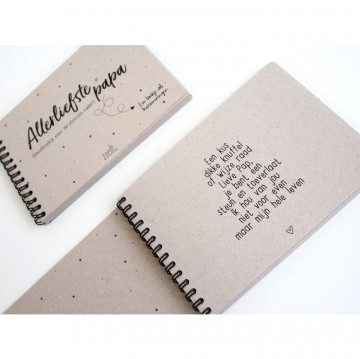 Allerliefste papa
Een kus
dikke knuffel
of wijze raad
Lieve Pap,
je bent een
steun en toeverlaat
Ik hou van jou
niet voor even
maar mijn hele leven